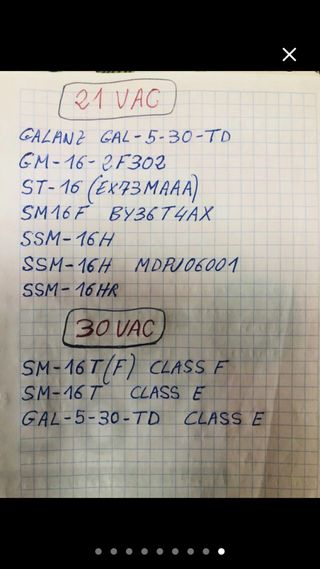 21 VAC
GALANZ GAL-5-30-TD
GM-16-2F302
ST-16 (EX73MAAA)
SM16F BY36T4AX
SSM-16H
SSM-16H MDPJ06001
SSM-16HR
30 VAC
SM-16T(F) CLASS F
SM-16T CLASS E
GAL-5-30-TD CLASS E